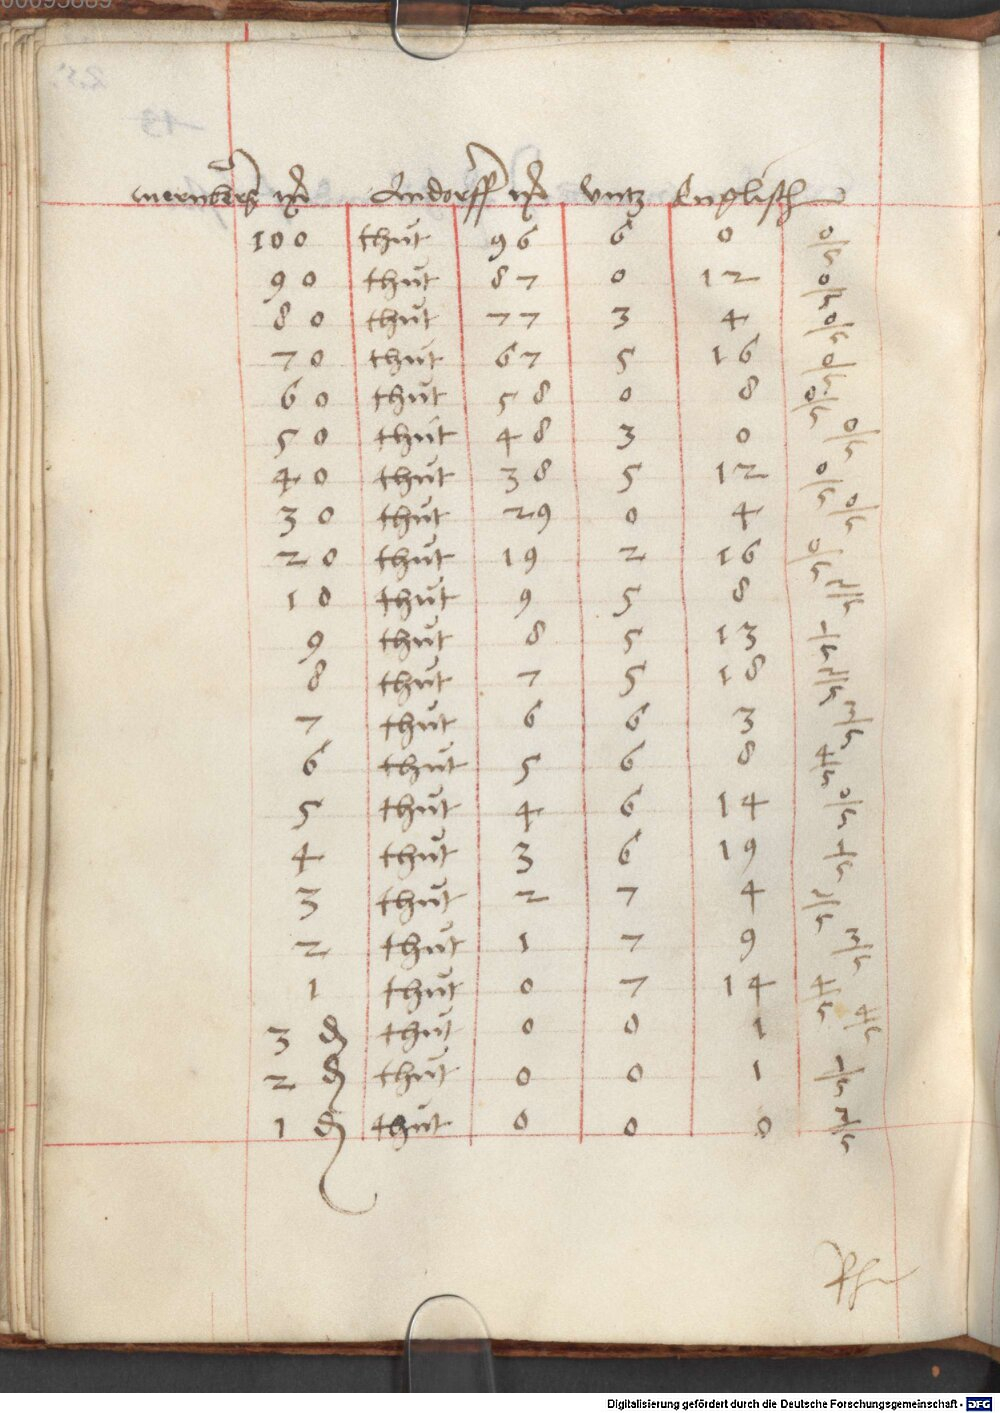 Nernberg
Andorff
Vntz Englisch
100 thut 96 6 0 0/5
90 thut 87 0 12 0/5
80 thut 77 3 4 0/5
70 thut 67 5 16 0/5
60 thut 58 0 8 0/5
50 thut 48 3 0 0/5
40 thut 38 5 12 0/5
30 thut 29 0 4 0/5
20 thut 19 2 16 0/5
10 thut 9 5 8 2/5
9 thut 8 5 13 1/5
8 thut 7 5 18 2/5
7 thut 6 6 3 3/5
6 thut 5 6 8 4/5
5 thut 4 6 14 0/5
4 thut 3 6 19 1/5
3 thut 2 7 4 2/5
2 thut 1 7 9 3/5
1 thut 0 7 14 4/5
3 ₰ thut 0 0 1 4/5
2 ₰ thut 0 0 1 1/5
1 ₰ thut 0 0 0 3/5
Digitalisierung gefördert durch die Deutsche Forschungsgemeinschaft - DFG